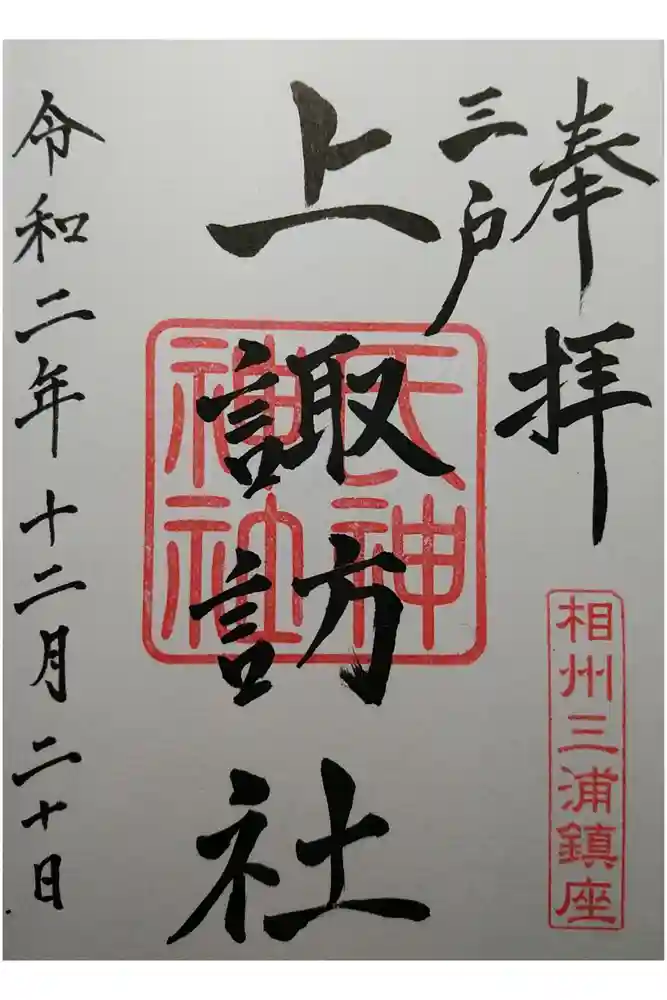 奉拝
三戸
上諏訪社
天神
神社
相州三浦鎮座
令和二年十二月二十日